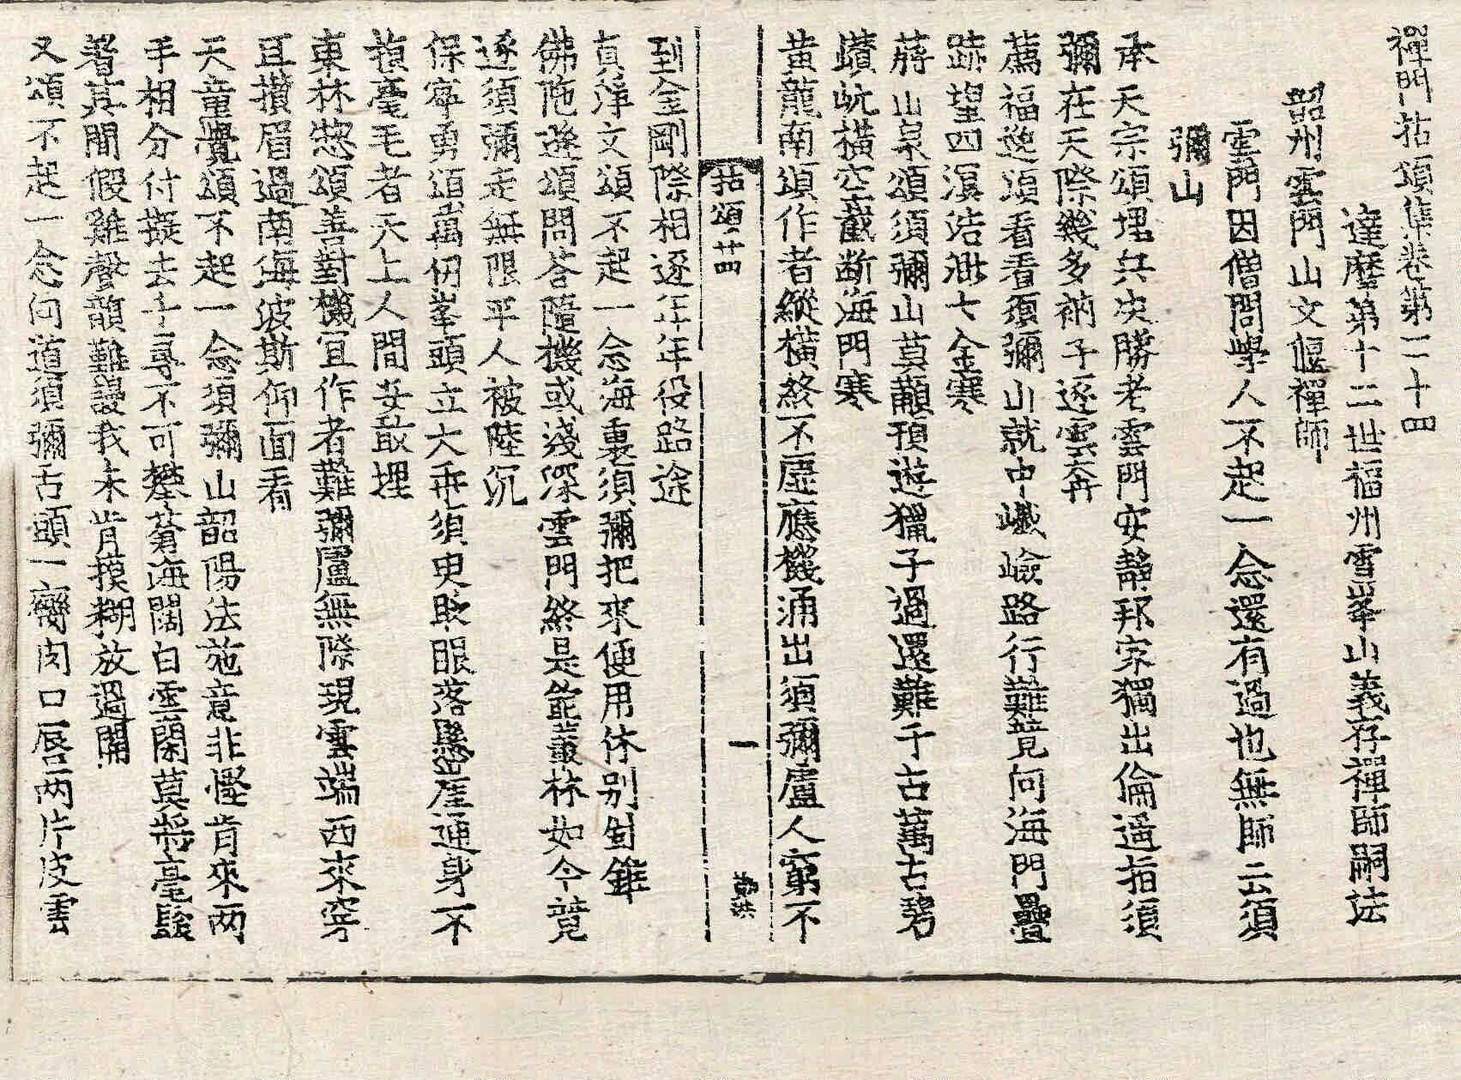 禪門拈頌集卷第二十四
達磨第十二世福州雪峯山義存禪師嗣法
韶州雲門山文偃禪師
雲門因僧問學人不起一念還有過也無師云須
彌山
承天宗頌埋兵决勝老雲門安靜邦家獨出倫遥指須
彌在天際幾多衲子逐雲奔
薦福逸頌看看須彌山就中巇嶮路行難競向海門疊
跡望四溟浩渺七金寒
蔣山泉頌須彌山莫顢頇遊獵子過還難千古萬古碧
巑岏橫空截斷海門寒
黄龍南頌作者縱橫終不虛應機涌出須彌盧人窮不
拈頌廿四
一
到金剛際相逐年年役路途
真淨文頌不起一念海裏須彌把來便用休别鉆錐
佛陁遜頌問荅隨機或淺深雲門終是能叢林如今競
逐須彌走無限平人被陸沉
保寧勇頌萬仞峯頭立大乖須臾眨眼落懸崖通身不
損毫毛者天上人間安敢埋
東林惣頌善對機冝作者難彌盧無際現雲端西來穿
耳攅眉過南海波斯仰面看
天童覺頌不起一念須彌山韶陽法施意非慳肯來兩
手相分付擬去千尋不可攀蒼海闊白雲閑莫將毫髮
着其間假雞聲韻難謾我未肯摸糊放過關
又頌不起一念问道須彌舌頭一臠肉口唇兩片皮雲